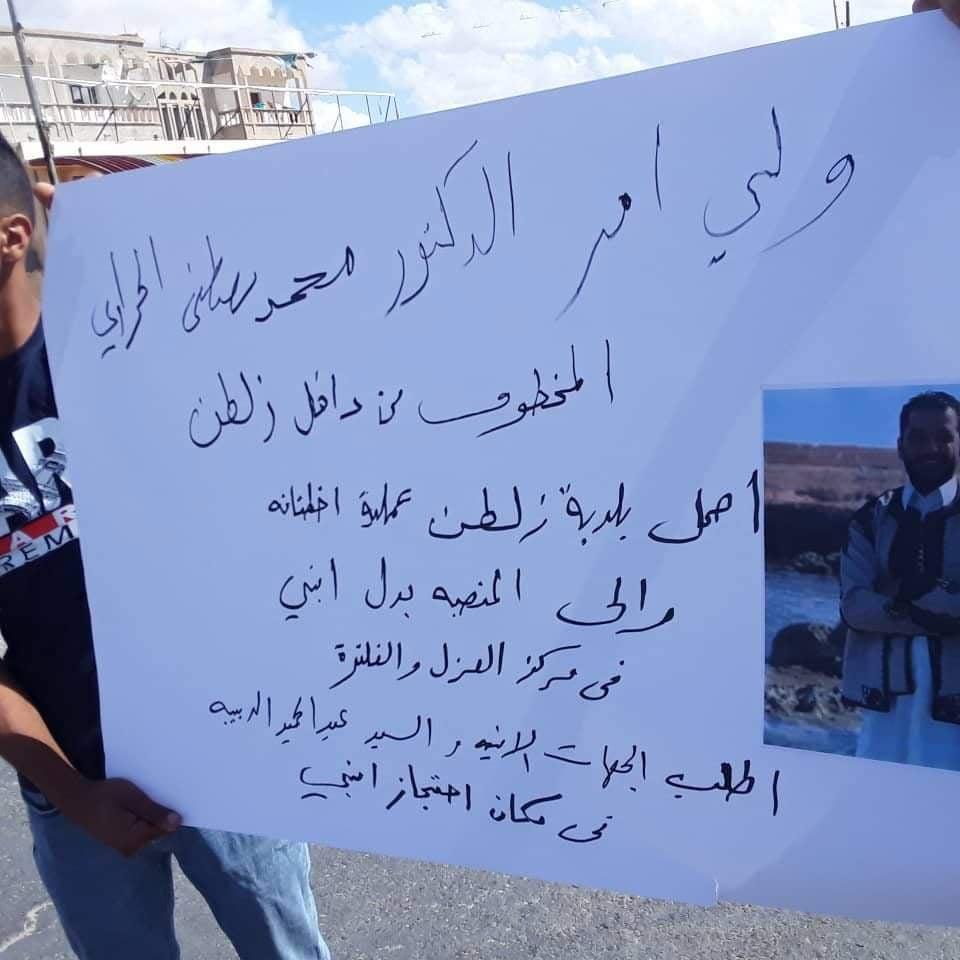 ولي امر الدكتور محمد مصطفى الحراري
المخطوف من داخل زلطن
احمل بلدية زلطن عملية اختطافه
والى المنصبه بدل ابني
في مركز العزل والفلترة
اطلب الجهات الامنيه والسيد عبدالحميد الدبيبه
في مكان احتجاز ابني
REM